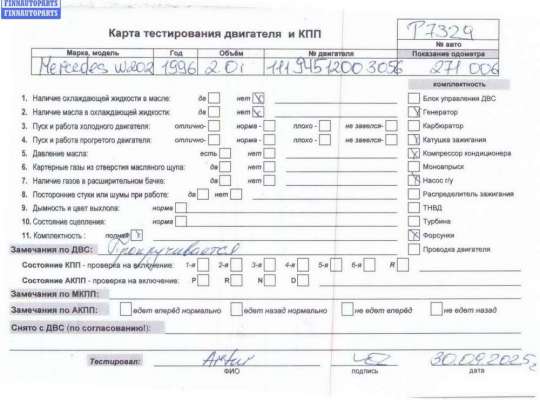 FINNAUTOPARTS
FINNAUTOPARTS
Карта тестирования двигателя и КПП
P7329
№ авто
Марка, модель Год Объём № двигателя Показание одометра
Mercedes W202 1996 2.0i 111945 1200 3056 271 006
комплектность
1. Наличие охлаждающей жидкости в масле: да нет V
2. Наличие масла в охлаждающей жидкости: да нет V
3. Пуск и работа холодного двигателя: отлично- норма - плохо - не завелся-
4. Пуск и работа прогретого двигателя: отлично- норма - плохо - не завелся-
5. Давление масла: есть нет
6. Картерные газы из отверстия масляного щупа: да нет
7. Наличие газов в расширительном бачке: да нет
8. Посторонние стуки или шумы при работе: да нет
9. Дымность и цвет выхлопа: норма
10. Состояние сцепления: норма
11. Комплектность : полная V
Блок управления ДВС
V Генератор
Карбюратор
V Катушка зажигания
V Компрессор кондиционера
Моновпрыск
V Насос г/у
Распределитель зажигания
ТНВД
Турбина
V Форсунки
Проводка двигателя
Замечания по ДВС: Прокручивается
Состояние КПП - проверка на включение: 1-я 2-я 3-я 4-я 5-я 6-я R
Состояние АКПП - проверка на включение: P R N D
Замечания по МКПП:
Замечания по АКПП: едет вперёд нормально едет назад нормально не едет вперёд не едет назад
Снято с ДВС (по согласованию!):
Тестировал: Artur 30.09.2025г
ФИО подпись дата